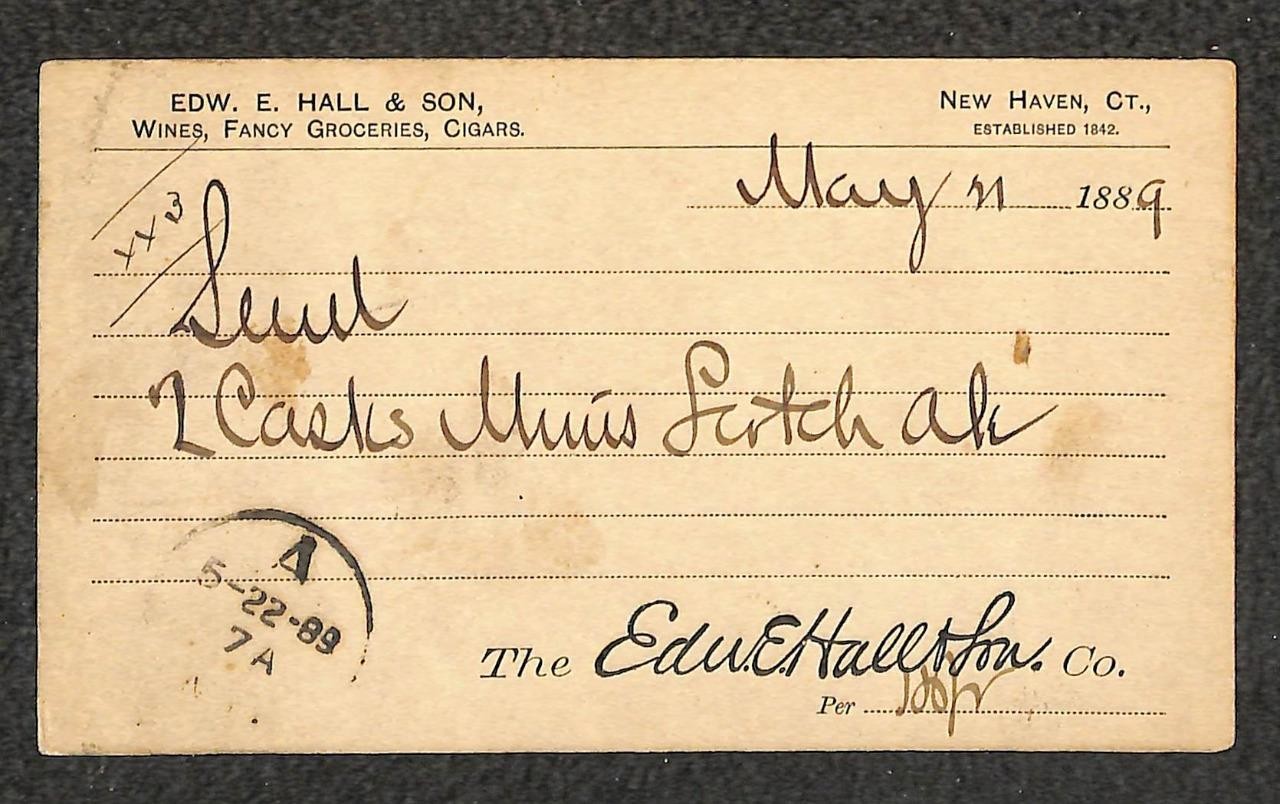 EDW. E. HALL & SON,
WINES, FANCY GROCERIES, CIGARS.
NEW HAVEN, CT.,
ESTABLISHED 1842.
May 21 1889
XX3
Send
2 Casks Muirs Scotch Ale
A
5-22-89
7 A
The Edw. E. Hall & Son. Co.
Per